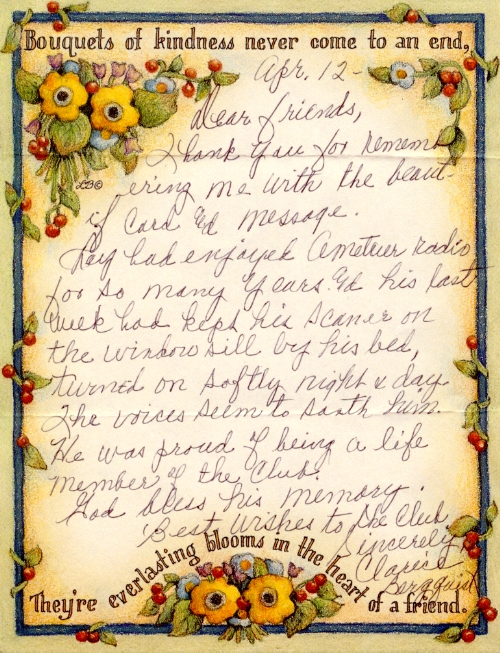 Bouquets of kindness never come to an end,
Apr. 12-
Dear friends,
Thank you for rememb
ering me with the beaut-
if Card &d message.
Ray had enjoyed Ametuer radio
for so many years. &d his last
week had kept his scaner on
the window sill by his bed,
turned on softly night & day.
The voices seem to sooth him.
He was proud of being a life
member of the Club.
God bless his memory.
Best wishes to the Club,
Sincerely,
Clarice
Bergquist
They're everlasting blooms in the heart of a friend.
LB©